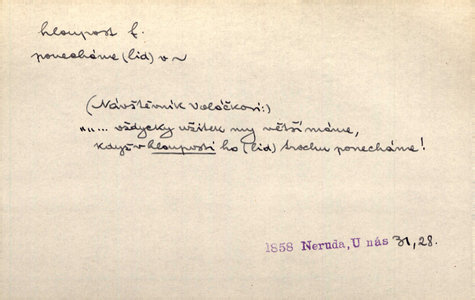 hloupost f.
ponecháme (lid) v ~
(Návštěvník Valáčkovi:)
"... vždycky užitek my větší máme,
když v hlouposti ho (lid) trochu ponecháme!
1858 Neruda, U nás 31, 28.